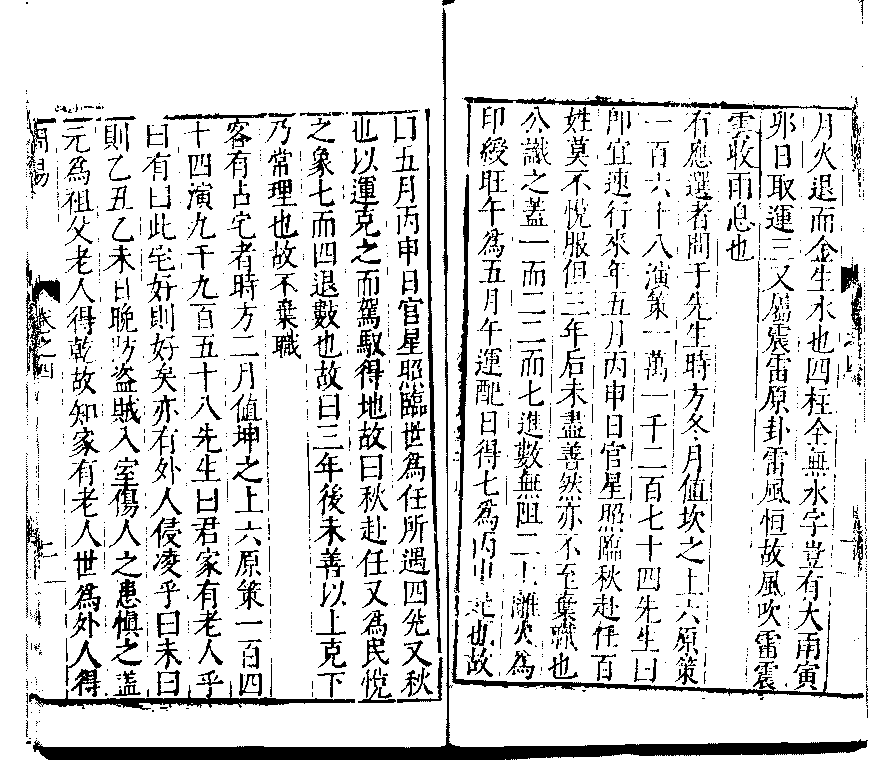 月火退而金生水也四柱全無水字豈有大雨寅
卯日取運三又屬震雷原卦雷風恒故風吹雷震
雲收雨息也
有應選者問于先生時方冬月值坎之上六原策
一百六十八演策一萬一千二百七十四先生曰
即宜速行來年五月丙申日官星照臨秋赴任百
姓莫不悅服但三年后未盡善然亦不至棄職也
公識之蓋一而二二而七進數無阻二上離火為
印綬旺午為五月午運配日得七為丙申是也故
曰五月丙申日官星照臨世為任所遇四兊又秋
也以運克之而駕馭得地故曰秋赴任又為民悅
之象七而四退數也故曰三年後未善以上克下
乃常理也故不棄職
客有占宅者時方二月值坤之上六原策一百四
十四演九千九百五十八先生曰君家有老人乎
曰有曰此宅好則好矣亦有外人侵凌乎曰未曰
則乙丑乙未日晚防盗賊入室傷人之患慎之蓋
元為祖父老人得乾故知家有老人世為外人得
周易
卷之四